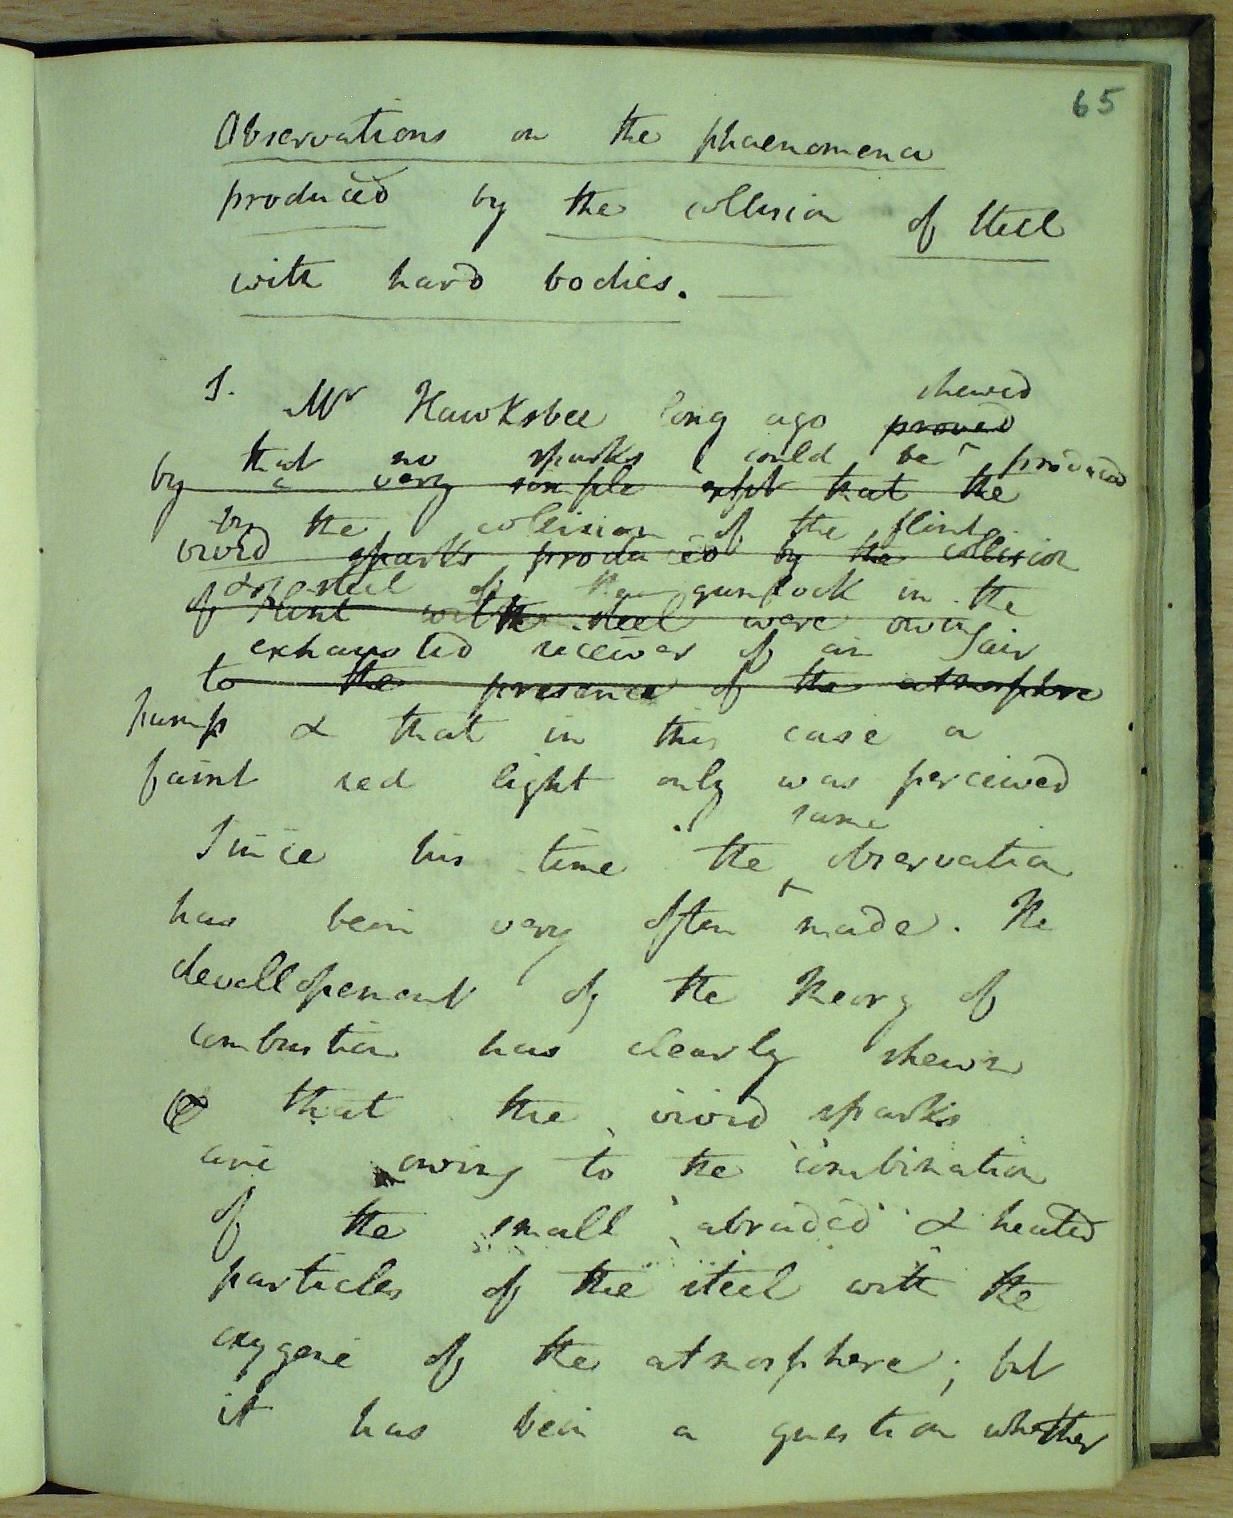 65
Observations on the phaenomena
produced by the collision of steel
with hard bodies. —
1. Mr Hawksbee long ago shewed
proved
that no sparks could be produced
by a very simple expt that the
by the collision of the flint
vivid sparks produced by the collision
& steel of the gunlock in the
of flint with the steel were owing
exhausted receiver of an air
to the presence of the atmosphere
pump & that in this case a
faint red light only was perceived
same
Since his time the ^ observation
has been very often made. The
devellopement of the Theory of
combustion has clearly shewn
that the vivid sparks
are owing to the combination
of the small abraded & heated
particles of the steel with the
oxygene of the atmosphere; but
it has been a question whether